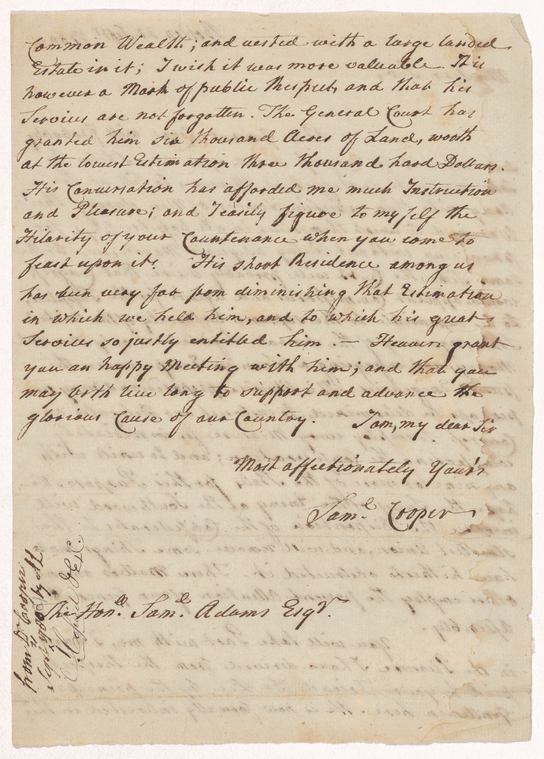 Common Wealth; and vested with a large landed
Estate in it; I wish it was more valuable. It is
however a Mark of public Respect, and that his
Services are not forgotten. The General Court has
granted him six thousand Acres of Land, worth
at the lowest Estimation three thousand hard Dollars.
His Conversation has afforded me much Instruction
and Pleasure; and I easily figure to myself the
Hilarity of your Countenance when you come to
feast upon it. His short Residence among us
has been very far from diminishing that Estimation
in which we held him, and to which his great
Services so justly entitled him. — Heaven grant
you an happy Meeting with him; and that you
may both live long to support and advance the
glorious Cause of our Country. I am, my dear Sir
Most affectionately Yours
Saml. Cooper
The Honble. Saml. Adams Esqr.
from Dr Cooper